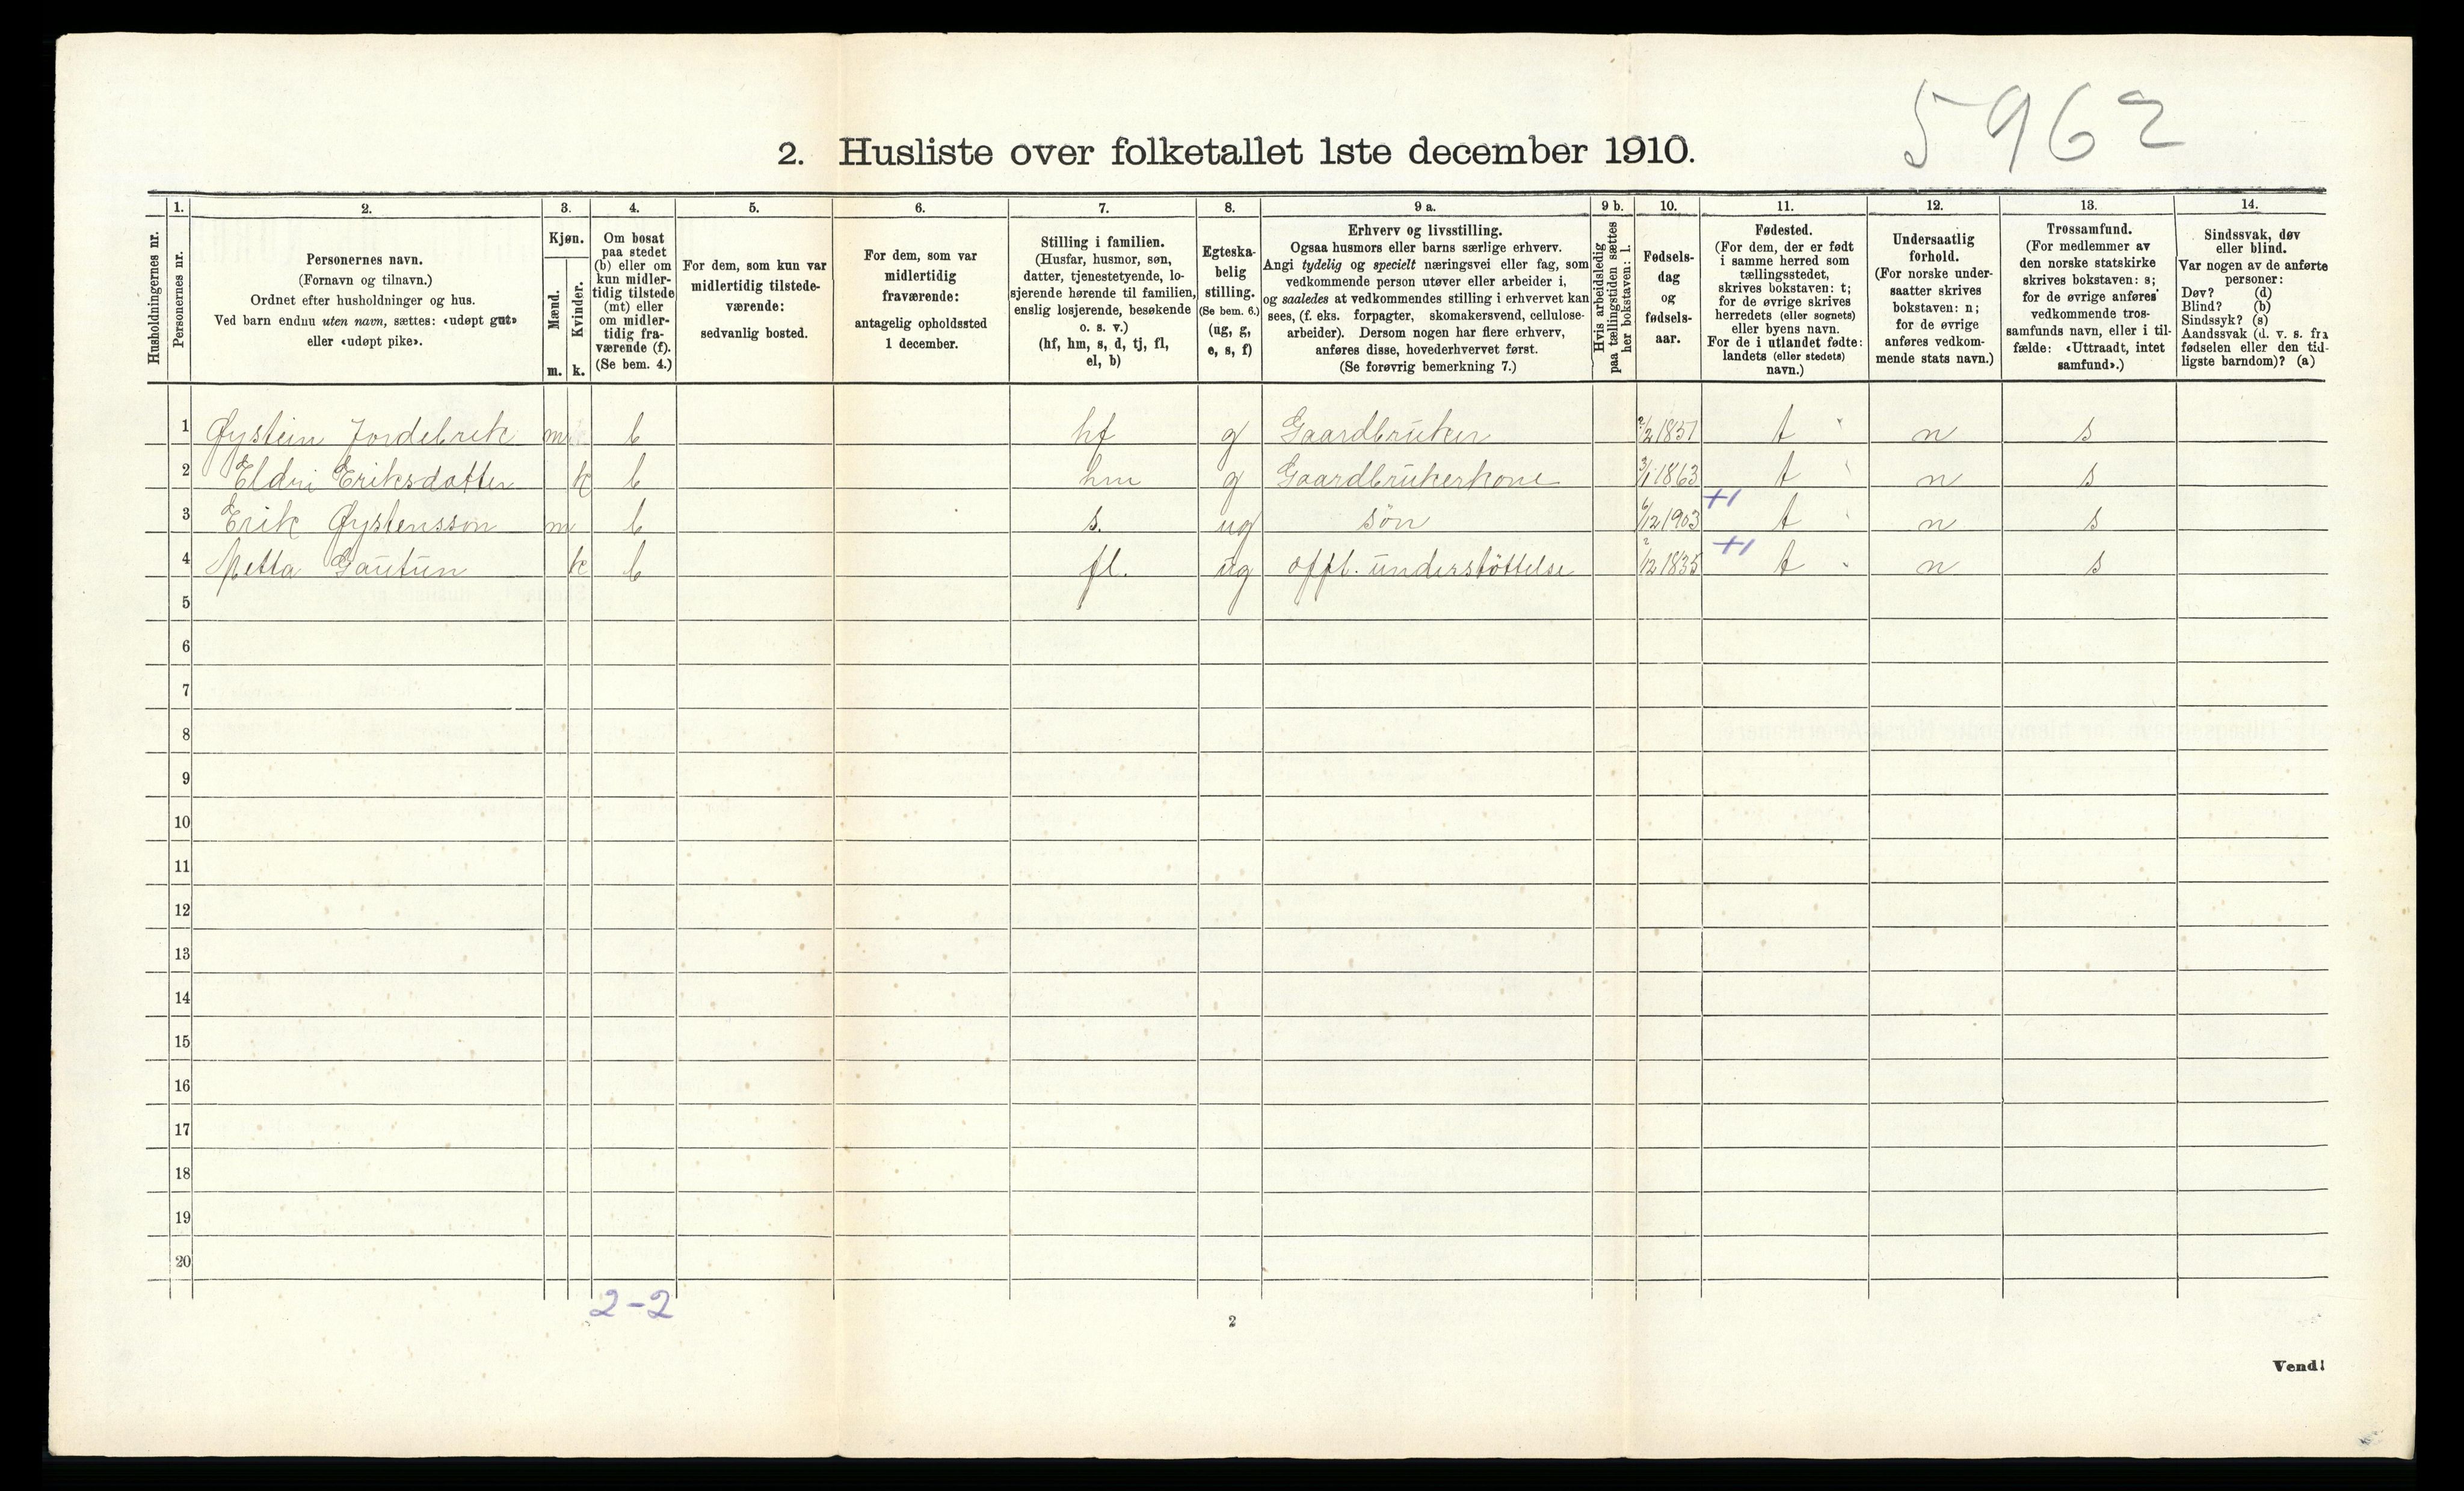 5962
2. Husliste over folketallet 1ste december 1910.
Husholdningernes nr.
1.
Personernes nr.
2.
Personernes navn.
(Fornavn og tilnavn.)
Ordnet efter husholdninger og hus.
Ved barn endnu uten navn, sættes: «udøpt gut»
eller «udøpt pike».
3.
Kjøn.
Mænd.
m.
Kvinder.
k.
4.
Om bosat
paa stedet
(b) eller om
kun midler-
tidig tilstede
(mt) eller
om midler-
tidig fra-
værende (f).
(Se bem. 4.)
5.
For dem, som kun var
midlertidig tilstede-
værende:
sedvanlig bosted.
6.
For dem, som var
midlertidig
fraværende:
antagelig opholdssted
1 december.
7.
Stilling i familien.
(Husfar, husmor, søn,
datter, tjenestetyende, lo-
sjerende hørende til familien,
enslig losjerende, besøkende
o. s. v.)
(hf, hm, s, d, tj, fl,
el, b)
8.
Egteska-
belig
stilling.
(Se bem. 6.)
(ug, g,
e, s, f)
9 a.
Erhverv og livsstilling.
Ogsaa husmors eller barns særlige erhverv.
Angi tydelig og specielt næringsvei eller fag, som
vedkommende person utøver eller arbeider i,
og saaledes at vedkommendes stilling i erhvervet kan
sees, (f. eks. forpagter, skomakersvend, cellulose-
arbeider). Dersom nogen har flere erhverv,
anføres disse, hovederhvervet først.
(Se forøvrig bemerkning 7.)
9 b.
Hvis arbeidsledig
paa tællingstiden sættes
her bokstaven: l.
10.
Fødsels-
dag
og
fødsels-
aar.
11.
Fødested.
(For dem, der er født
i samme herred som
tællingsstedet,
skrives bokstaven: t;
for de øvrige skrives
herredets (eller sognets)
eller byens navn.
For de i utlandet fødte:
landets (eller stedets)
navn.)
12.
Undersaatlig
forhold.
(For norske under-
saatter skrives
bokstaven: n;
for de øvrige
anføres vedkom-
mende stats navn.)
13.
Trossamfund.
(For medlemmer av
den norske statskirke
skrives bokstaven: s;
for de øvrige anføres
vedkommende tros-
samfunds navn, eller i til-
fælde: «Uttraadt, intet
samfund».)
14.
Sindssvak, døv
eller blind.
Var nogen av de anførte
personer:
Døv? (d)
Blind? (b)
Sindssyk? (s)
Aandssvak (d. v. s. fra
fødselen eller den tid-
ligste barndom)? (a)
1 Øystein Jordebrek m b hf g Gaardbruker 2/2 1851 t n s
2 Eldri Eriksdatter k b hm g Gaardbrukerkone 3/1 1863 t n s
3 Erik Øystensson m b s. ug søn 6/12 1903 +1 t n s
4 Metta Gautun k b fl. ug offl. understöttelse 2/12 1835 +1 t n s
5
6
7
8
9
10
11
12
13
14
15
16
17
18
19
20
2-2
2
Vend!